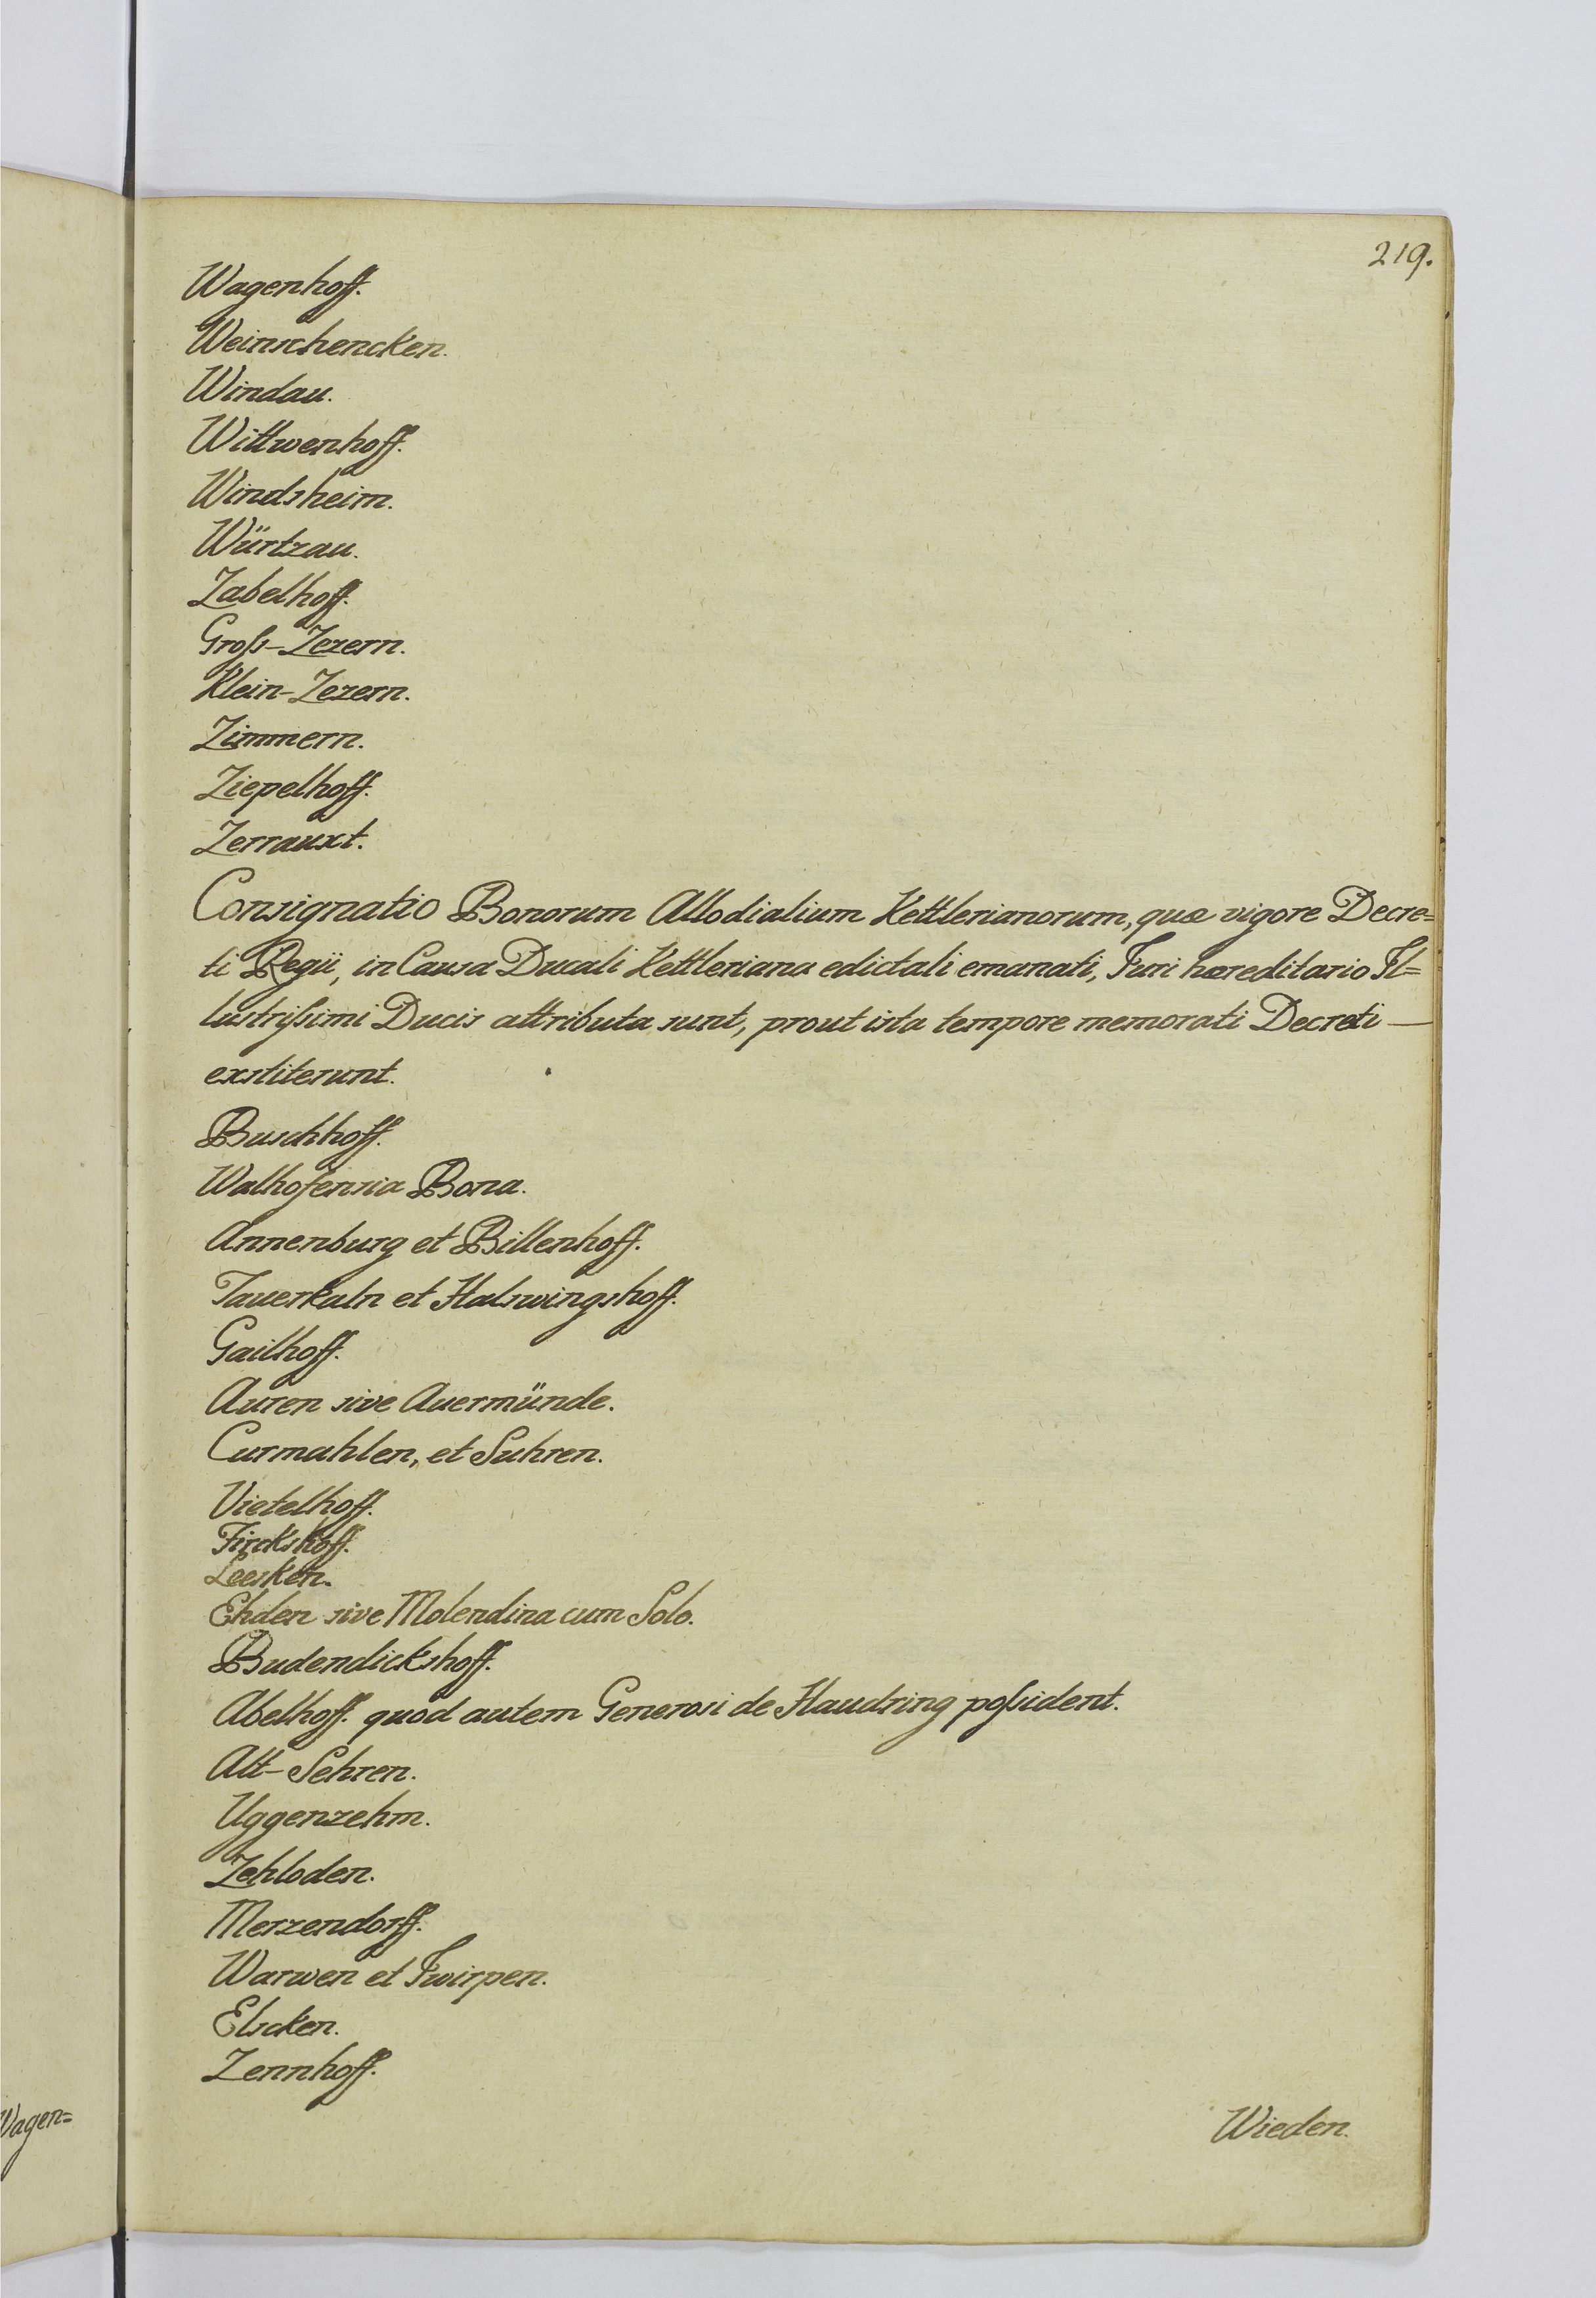 219.
Wagenhoff.
Weinschencken.
Windau.
Wittwenhoff.
Windsheim.
Würtzau.
Zabelhoff.
Groſs-Zezern.
Klein-Zezern.
Zimmern.
Ziepelhoff.
Zerrauxt.
Consignatio Bonorum Allodialium Kettlerianorum, quæ vigore Decre=
ti Regii, in Causa Ducali Kettleriana edictali emanati, Juri hæreditario Il=
lustriſsimi Ducis attributa sunt, prout ista tempore memorati Decreti —
exstiterunt.
Buschhoff.
Walhofensia Bona.
Annenburg et Billenhoff.
Tauerkaln et Halswingshoff.
Gailhoff.
Auren sive Auermünde.
Curmahlen, et Suhren.
Vietelhoff.
Fircks hoff.
Leesken.
Ehden sive Molendina cum Solo.
Budendickshoff.
Abelhoff. quod autem Generosi de Haudring poſsident.
Alt-Sehren.
Uggenzehm.
Zehloden.
Merzendorff.
Warwen et Jwirpen.
Elscken.
Zennhoff.
Wieden.
Wagen=